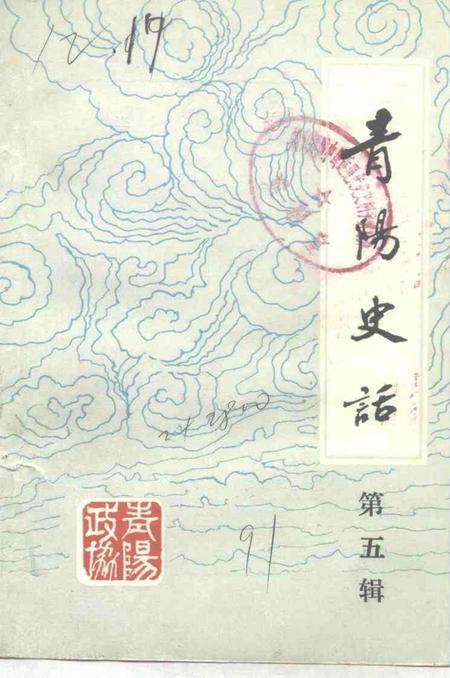 青陽史話
第五辑
青陽
政协
12.17
91